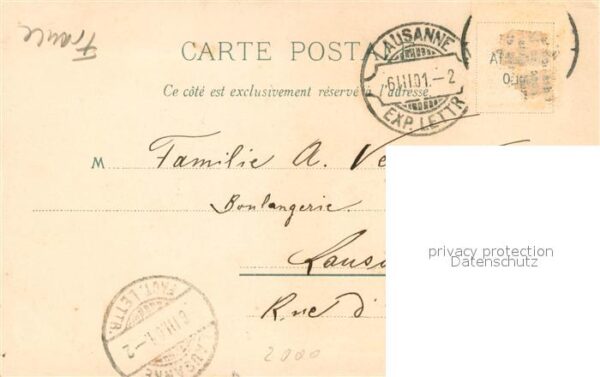 France
CARTE POSTA
Ce côté est exclusivement réservé à l'adresse.
LAUSANNE
6 III 01.-2
EXP. LETTR.
M Familie A. Ve
Boulangerie.
Laus
Rue d'
privacy protection
Datenschutz
LETTR.
III 01.-2
LAUSANNE
2000